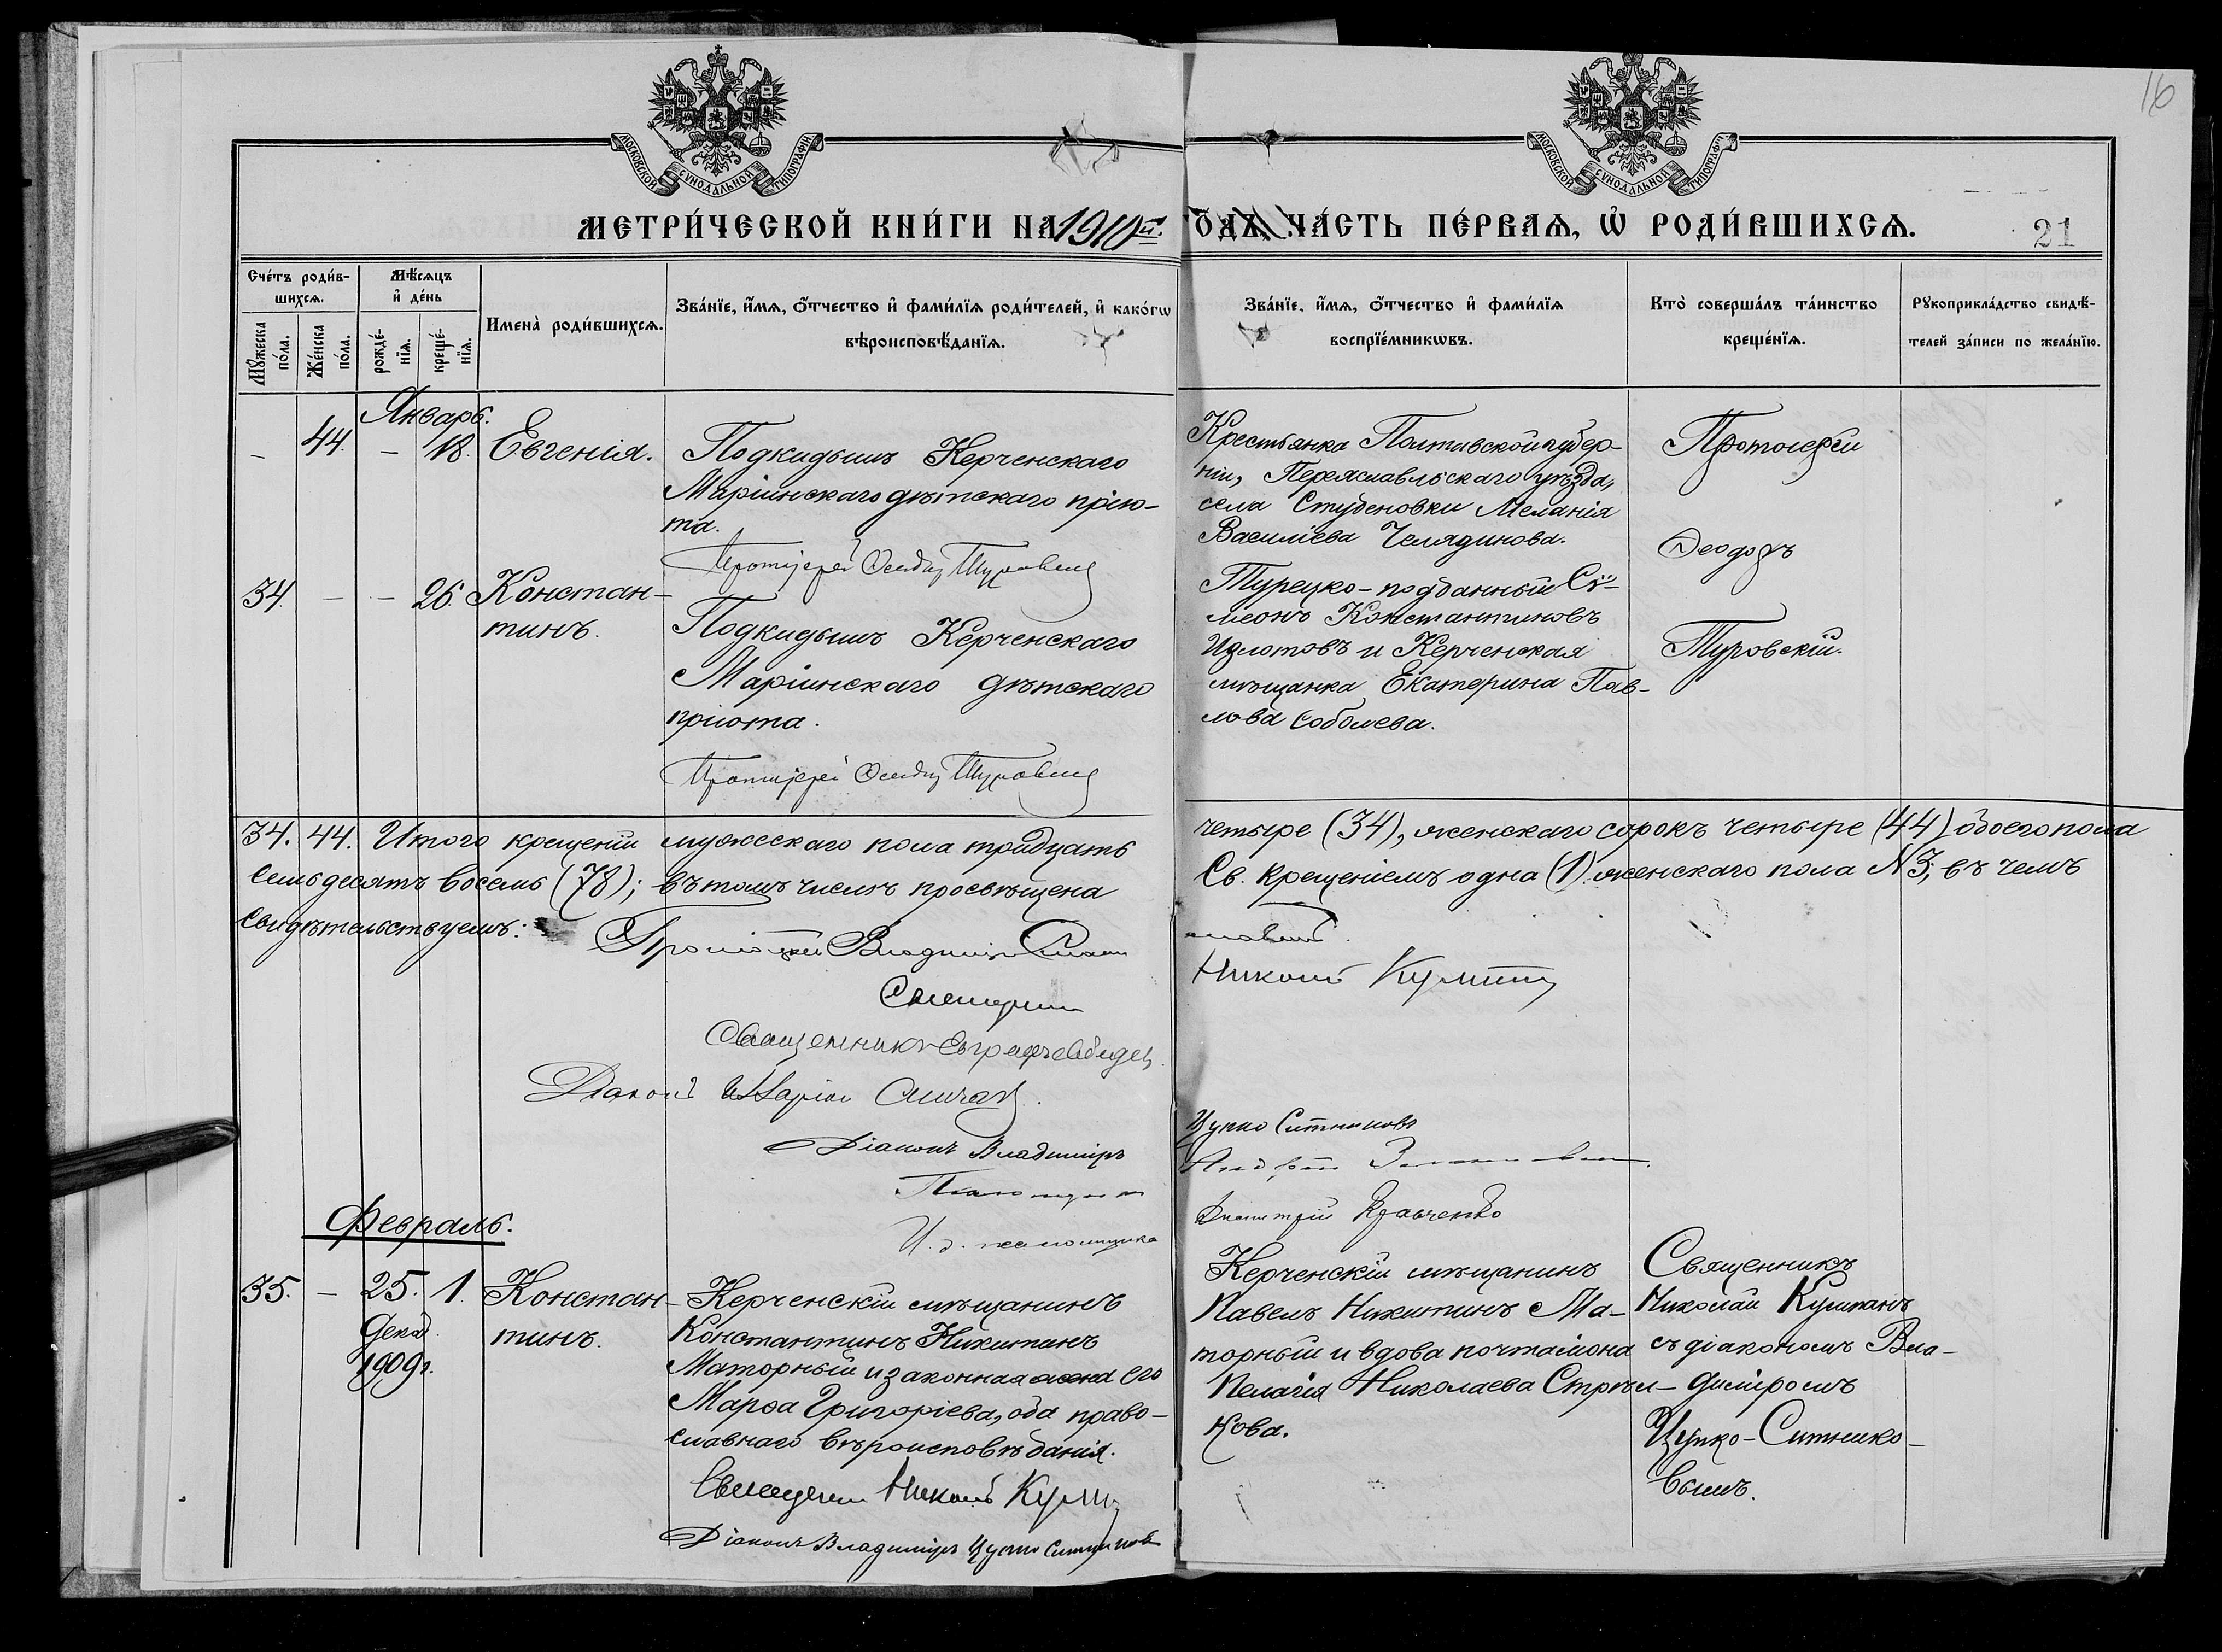 16
МОСКОВСКОЙ СѴНОДАЛЬНОЙ ТИПОГРАФІИ
МОСКОВСКОЙ СѴНОДАЛЬНОЙ ТИПОГРАФІИ
МЕТРИ́ЧЕСКОЙ КНИ́ГИ НА 1910й. ГО́ДЪ, ЧА́СТЬ ПЕ́РВАѦ, Ѡ҆ РОДИ́ВШИХСѦ.
21
Сче́тъ роди́в-
шихсѧ.
Мꙋ́жеска по́ла.
Же́нска по́ла.
Мѣ́сѧцъ
и҆ де́нь
рожде́-
нїѧ.
креще́-
нїѧ.
Имена̀ роди́вшихсѧ.
Зва́нїе, и҆́мѧ, о҆́тчество и҆ фами́лїѧ роди́телей, и҆ како́гѡ
вѣроисповѣ́данїѧ.
Зва́нїе, и҆́мѧ, о҆́тчество и҆ фами́лїѧ
воспрїе́мникѡвъ.
Кто̀ соверша́лъ та́инство
креще́нїѧ.
Рꙋкоприкла́дство свидѣ́-
телей за́писи по жела́нїю.
Январь.
— 44. — 18. Евгенія.
Подкидышъ Керченскаго
Маріинскаго дѣтскаго прію-
та.
Протоіерей Ѳеодоръ Туровскій
Крестьянка Полтавской губер-
ніи, Переяславльскаго уѣзда,
села Студеновки Меланія
Василіева Челядинова.
Протоіерей
Ѳеодоръ
Туровскій.
34. — — 26. Констан-
тинъ.
Подкидышъ Керченскаго
Маріинскаго дѣтскаго
пріюта.
Протоіерей Ѳеодоръ Туровскій
Турецко-подданный Сѵ-
меонъ Константиновъ
Излотовъ и Керченская
мѣщанка Екатерина Пав-
лова Соболева.
34. 44. Итого крещеній мужескаго пола тридцать четыре (34), женскаго сорокъ четыре (44) обоего пола
семьдесятъ восемь (78); въ томъ числѣ просвѣщена Св. Крещеніемъ одна (1) женскаго пола N 3; въ чемъ
свидѣтельствуемъ:
Протоіерей Владиміръ
Священникъ Николай Кульпанъ
Священникъ Евграфъ
Діаконъ Иларіон
Діаконъ Владиміръ Цупко Ситниковъ
Псаломщикъ Андрей
И. д. псаломщика Димитрій Кравченко
Февраль.
35. — 25. 1. Констан-
Декаб. тинъ.
1909 г.
Керченскій мѣщанинъ
Константинъ Никитинъ
Маторный и законная жена его
Марѳа Григоріева, оба право-
славнаго вѣроисповѣданія.
Священникъ Николай Кульпанъ
Діаконъ Владиміръ Цупко Ситниковъ
Керченскій мѣщанинъ
Павелъ Никитинъ Ма-
торный и вдова почтальона
Пелагія Николаева Стрѣл-
кова.
Священникъ
Николай Кульпанъ
съ діакономъ Вла-
диміромъ
Цупко-Ситнико-
вымъ.